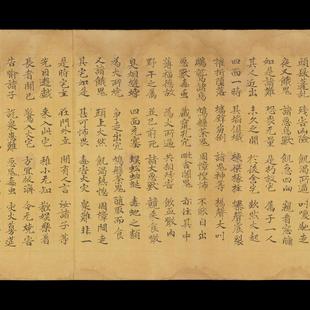 頭髮蓬亂 殘害凶險 飢渴所逼 叫喚馳走
夜叉餓鬼 諸惡鳥獸 飢急四向 窺看窓牖
如是諸難 恐畏無量 是朽故宅 屬于一人
其人近出 未久之間 於後舍宅 欻然火起
四面一時 其炎俱熾 棟梁椽柱 爆聲震裂
摧折墮落 牆壁崩倒 諸鬼神等 揚聲大叫
鵰鷲諸鳥 鳩槃荼等 周慞惶怖 不能自出
惡獸毒蟲 藏竄孔穴 毗舍闍鬼 亦住其中
薄福德故 為火所逼 共相殘害 飲血噉肉
野干之屬 並已前死 諸大惡獸 競來食噉
臭煙熢㶿 四面充塞 蜈蚣蚰蜒 毒蛇之類
為火所燒 爭走出穴 鳩槃荼鬼 隨取而食
又諸餓鬼 頭上火然 飢渴熱惱 周慞悶走
其宅如是 甚可怖畏 毒害火災 眾難非一
是時宅主 在門外立 聞有人言 汝諸子等
先因遊戲 來入此宅 稚小無知 歡娛樂著
長者聞已 驚入火宅 方宜救濟 令無燒害
告喻諸子 說眾患難 惡鬼毒蟲 災火蔓延